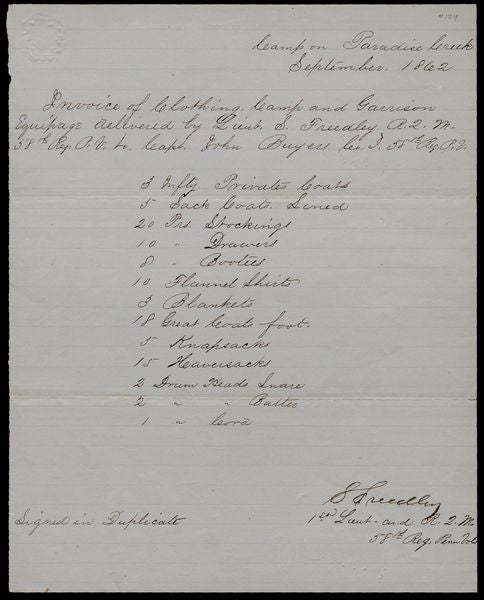 #124
Camp on Paradise Creek
September. 1862
Invoice of Clothing, Camp and Garrison
Equipage delivered by Lieut. S. Freedley R.Q.M.
58th Reg. P.V. to Capt. John Buyers Co. I. 58th Reg. P.V.
3 Infty. Privates Coats
5 Sack Coats. Lined
20 Prs. Stockings
10 " Drawers
8 " Bootees
10 Flannel Shirts
3 Blankets
18 Great Coats foot.
5 Knapsacks
15 Haversacks
2 Drum Heads Snare
2 " " Batter
1 " Cord
S Freedley
1st Lieut. and R.Q.M.
Signed in Duplicate
58th Reg. Penn Vols